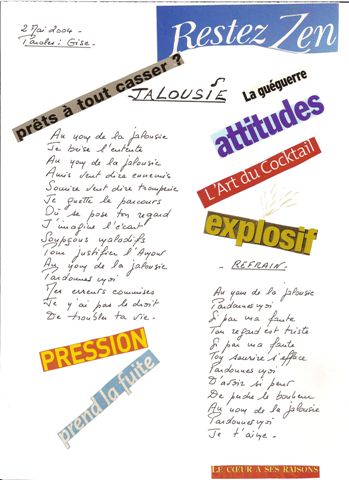 2 Mai 2004.
Paroles : Gise.
Restez Zen
prêts à tout casser ?
JALOUSIE
La guéguerre
attitudes
L'Art du Cocktail
explosif
Au nom de la jalousie
Je brise l'entente
Au nom de la jalousie
Amis veut dire ennemis
Sourire veut dire tromperie
Je guette le parcours
Où se pose ton regard
J'imagine l'écart
Soupçons maladifs
Pour justifier l'Amour
Au nom de la jalousie
Pardonnes moi
Mes erreurs commises
Je n'ai pas le droit
De troubler ta vie.
PRESSION
prend la fuite
REFRAIN.
Au nom de la jalousie
Pardonnes moi
Si par ma faute
Ton regard est triste
Si par ma faute
Ton sourire s'efface
Pardonnes moi
D'avoir si peur
De perdre le bonheur
Au nom de la jalousie
Pardonnes moi
Je t'aime.
LE CŒUR A SES RAISONS